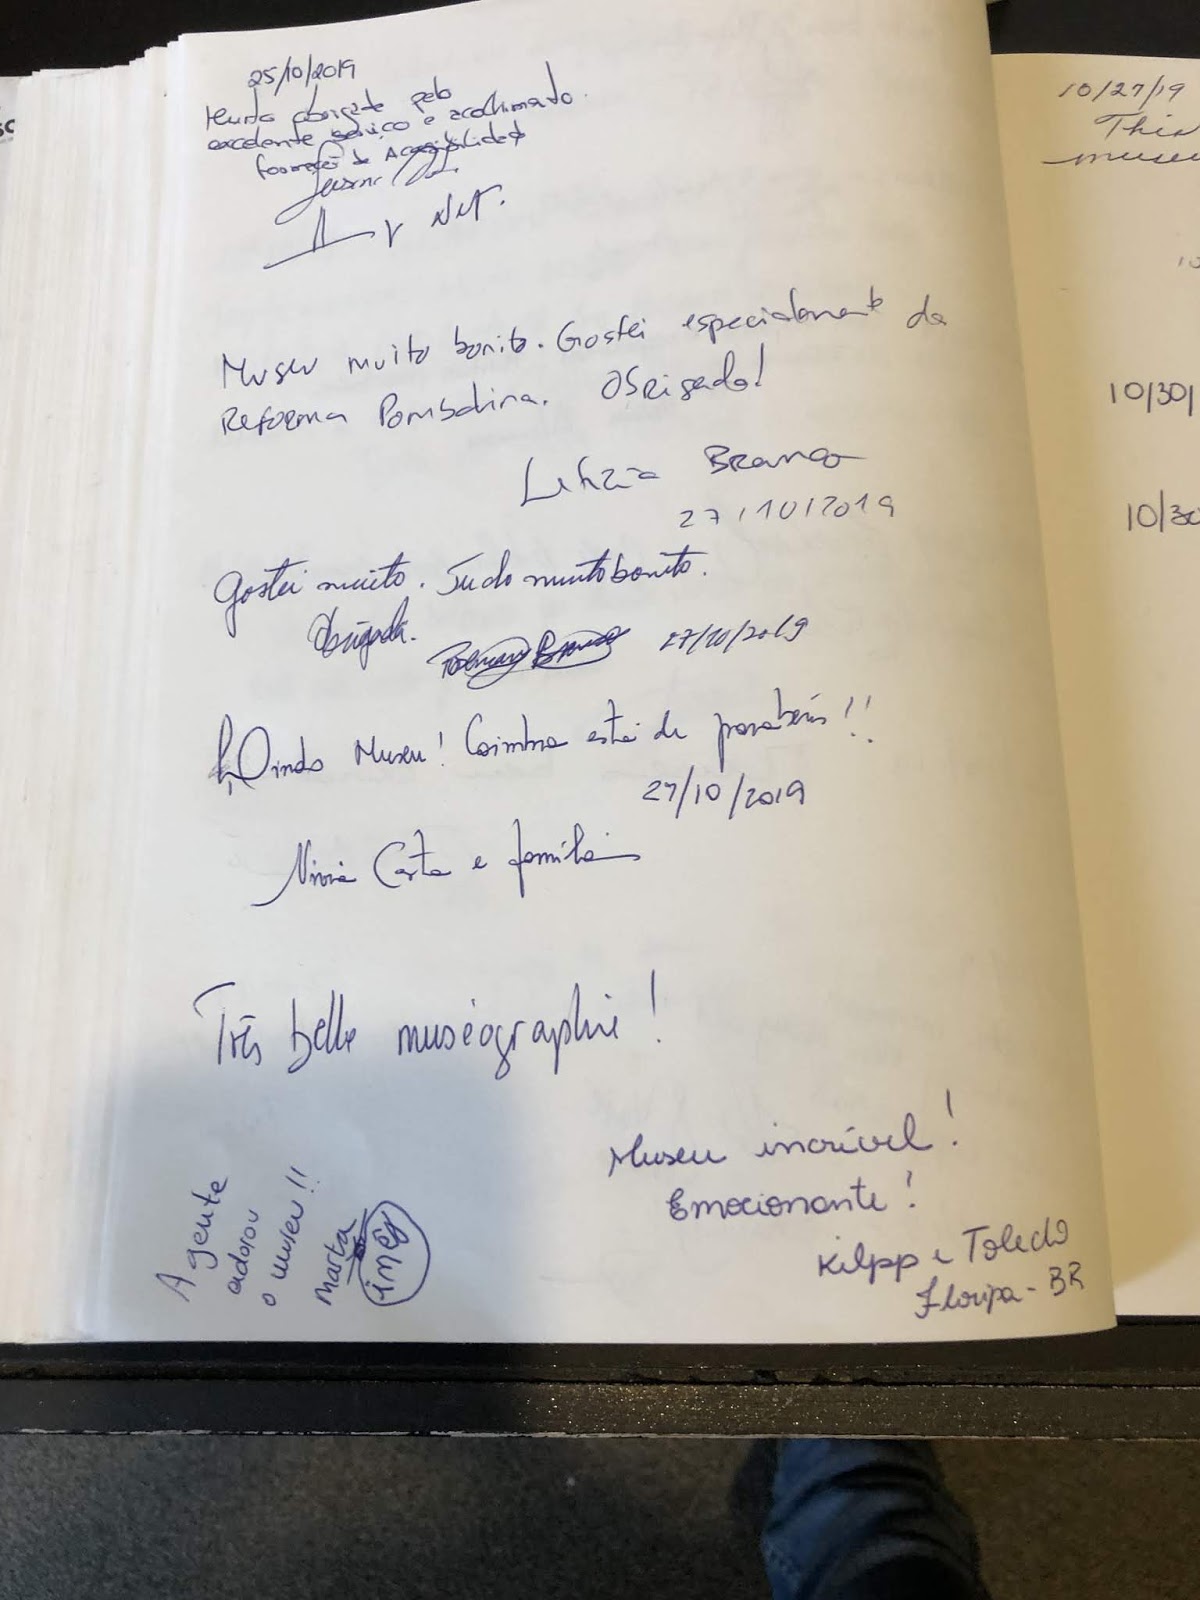 25/10/2019
Muito obrigada pelo
excelente serviço e acolhimento.
formação de Acessibilidade
Museu muito bonito. Gostei especialmente da
Reforma Pombalina. Obrigada!
Letizia Branco
27/10/2019
Gostei muito. Tudo muito bonito.
Obrigada.
27/10/2019
Lindo Museu! Coimbra está de parabéns!!
27/10/2019
Costa e família
Três belle muséographie!
Museu incrível!
Emocionante!
Kilpp e Toledo
Floripa - BR
A gente
adorou
o museu!!
Marta
inês
10/27/19
This
museu
10/30/
10/30